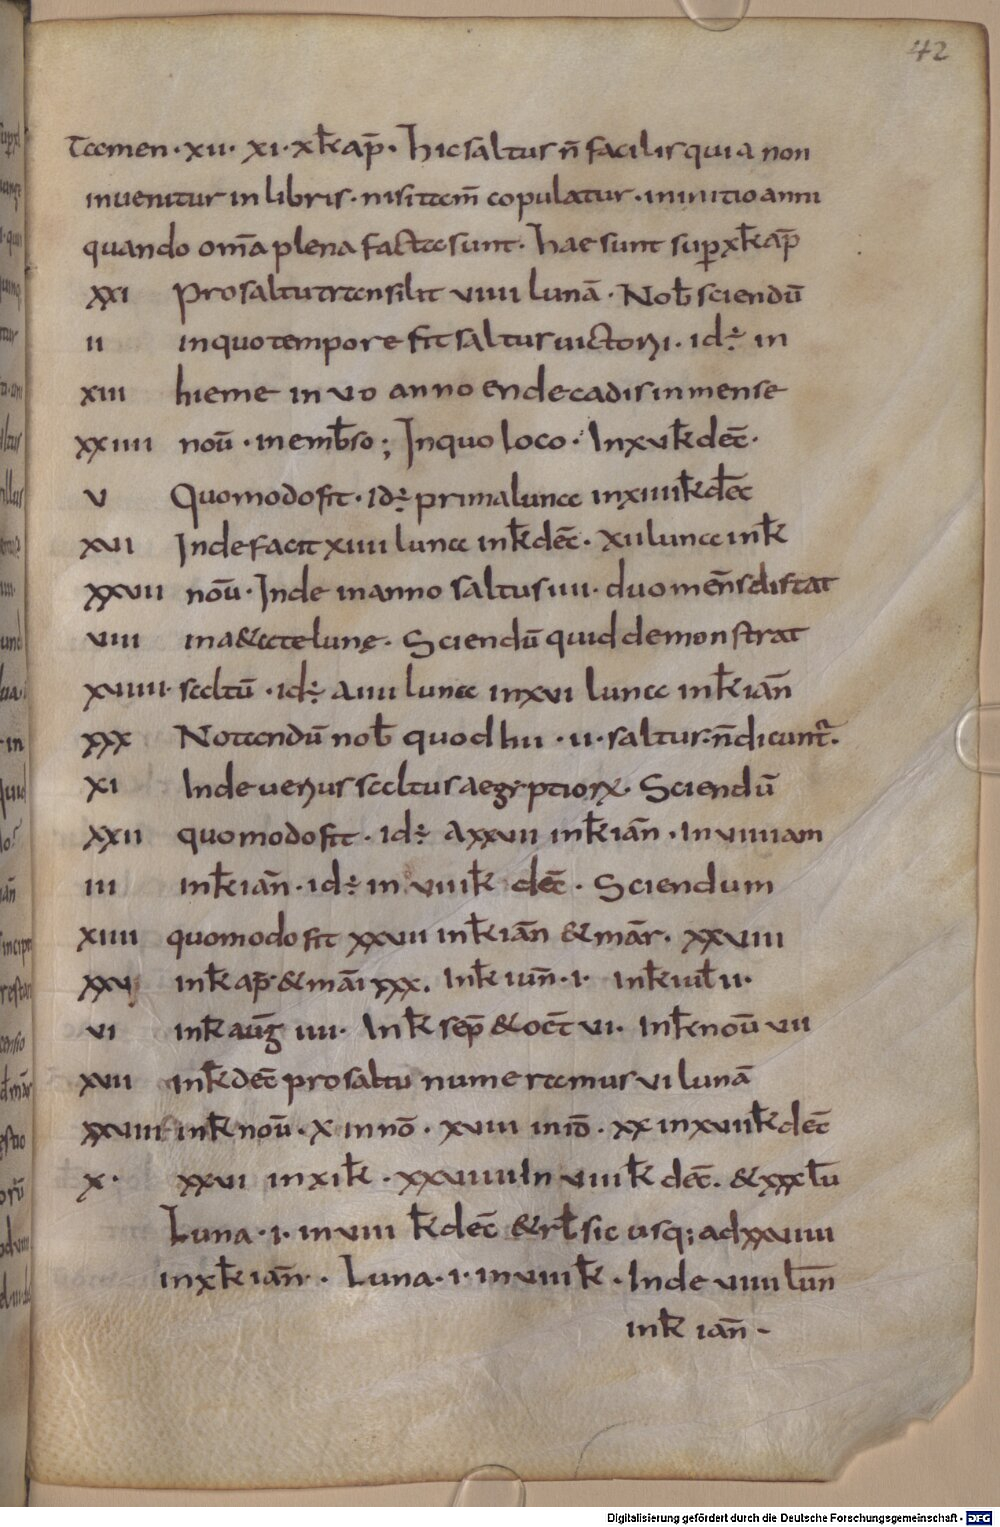 42
Tamen · xii · xi · xk̅ ap̅ · hic saltus n̅ facilis quia non
inuenitur in libris · nisi tam̅ copulatur · in initio anni
quando om̅a plena facta sunt · hae sunt sup̱ xk̅ ap̅
xxi Pro saltu transilit viiii lunā · Nob̅ sciendū
ii in quo tempore fit saltus uictorii · id÷ in
xiii hieme in vo anno endecadis in mense
xxiiii nou̅ · in emb̅so ; In quo loco · In xvk̅ dec̅ ·
v Quomodo fit · id÷ prima luna in xiiiik̅ dec̅
xvi Inde facit xiiii luna ink̅ dec̅ · xii luna ink̅
xxvii nou̅ · Inde in anno saltus iiii · duo men̅s distat
viii in a&ate lunę · Sciendū quid demonstrat
xviiii · saltū · id÷ a iiii luna in xvi luna ink̅ ian̅
xxx Notandū nob̅ quod hii · ii · saltus · n̅ dicunt̅ ·
xi Inde uerus saltus aegyptiorꝝ · Sciendū
xxii quomodo fit · id÷ a xxvii ink̅ ian̅ · In viiii am
iii ink̅ ian̅ · id÷ in viiik̅ dec̅ · Sciendum
xiiii quomodo fit xxvii ink̅ ian̅ & mar̅ · xxviii
xxv ink̅ ap̅ & mai̅ xxx · Ink̅ iun̅ · i · Ink̅ iul̅ ii ·
vi ink̅ aug̅ iiii · Ink̅ sep̅ & oct̅ vi · Ink̅ nou̅ vii
xvii ink̅ dec̅ pro saltu numeramus vi lunā
xxviii ink̅ nou̅ · x in no̅ · xviii in id̅ · xx in xviik̅ dec̅
x · xxvi in xik̅ · xxviiii In viiik̅ dec̅ · & xxx lu̅
Luna · i · in viii k̅ dec̅ & rl̅ sic usq; ad xxviiii
in xk̅ ianr̅ · Luna · i · in viiik̅ · Inde viiii lun̅
ink̅ ian̅ -
Digitalisierung gefördert durch die Deutsche Forschungsgemeinschaft - DFG